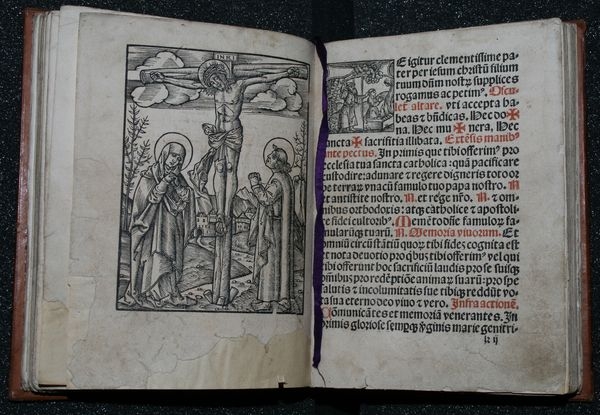 INRI
E igitur clementissime pa-
ter per iesum christū filium
tuum dn̄m nostrū supplices
rogamus ac petim⁹. Oscu-
let altare. vti accepta ha-
beas ⁊ bn̄dicas. Hec do✠
na. Hec mu✠nera, Hec
sancta ✠ sacrificia illibata. Extēsis manib⁹
ante pectus. In primis que tibi offerim⁹ pro
ecclesia tua sancta catholica: quā pacificare
custodire: adunare ⁊ regere digneris toto or
be terrarū vnacū famulo tuo papa nostro. N
et antistite nostro. N. et rege nr̄o. N. ⁊ om-
nibus orthodoxis: atqꝫ catholice ⁊ apostoli-
ce fidei cultorib⁹. Memēto dn̄e famulorū fa-
mularūqꝫ tuarū. N. Memoria viuorum. Et
omniū circūstātiū quorū tibi fides cognita est
et nota deuotio pro qbus tibi offerim⁹ vel qui
tibi offerunt hoc sacrificiū laudis pro se suisqꝫ
omībus pro redēptiōe animarū suarū: pro spe
salutis ⁊ incolumitatis sue tibiqꝫ reddūt vo-
ta sua eterno deo viuo ⁊ vero. Infra actionē.
Cōmunicātes et memoriā venerantes. In
primis gloriose sempqꝫ v̄ginis marie genitri-
k ij